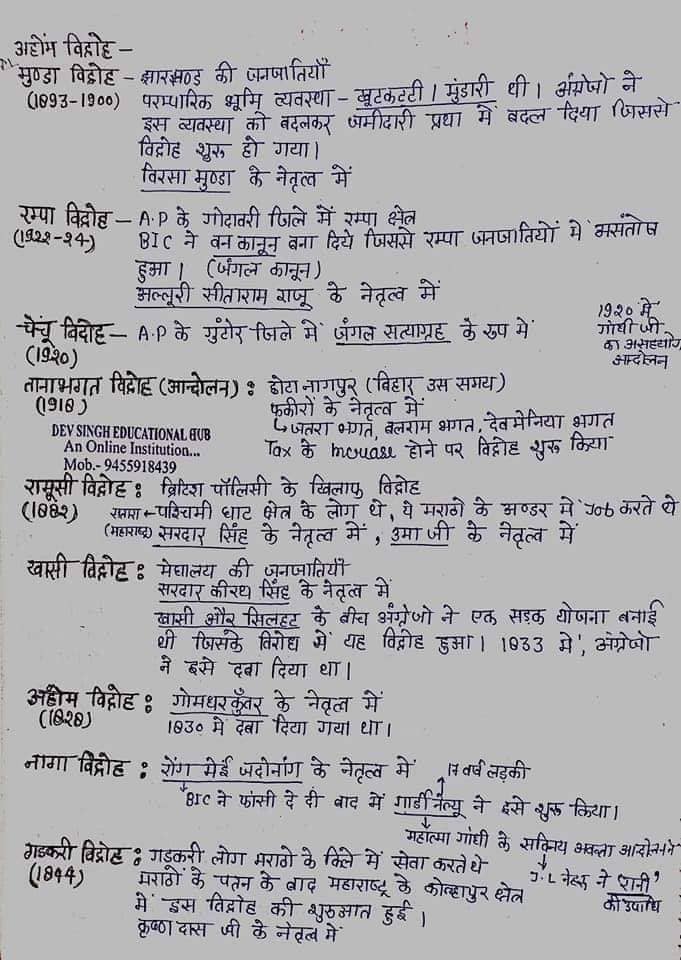 अहोम विद्रोह –
मुण्डा विद्रोह – झारखण्ड की जनजातियाँ
(1893-1900) परम्परिक भूमि व्यवस्था – खूटकटटी । मुंडारी थी । अंग्रेजो ने
इस व्यवस्था को बदलकर जमीदारी प्रथा में बदल दिया जिससे
विद्रोह शुरू हो गया।
विरसा मुण्डा के नेतृत्व में
रम्पा विद्रोह – A.P के गोदावरी जिले में रम्पा क्षेत्र
(1922-24) BIC ने वन कानून बना दिये जिससे रम्पा जनजातियों में असंतोष
हुआ। (जंगल कानून)
अल्लूरी सीताराम राजू के नेतृत्व में
चेंचू विद्रोह – A.P के गुंटोर जिले में जंगल सत्याग्रह के रूप में
(1920)
1920 में
गाँधी जी
का असहयोग
आन्दोलन
तानाभगत विद्रोह (आन्दोलन) : छोटा नागपुर (बिहार उस समय)
(1918) फकीरों के नेतृत्व में
↳ जतरा भगत, बलराम भगत, देवमेनिया भगत
Tax के होने पर विद्रोह शुरू किया
DEV SINGH EDUCATIONAL HUB
An Online Institution...
Mob.- 9455918439
रामूसी विद्रोह : ब्रिटिश पॉलिसी के खिलाफ विद्रोह
(1882) सतारा ← पश्चिमी घाट क्षेत्र के लोग थे, ये मराठो के अण्डर में Job करते थे
(महाराष्ट्र) सरदार सिंह के नेतृत्व में, उमा जी के नेतृत्व में
खासी विद्रोह : मेघालय की जनजातियाँ
सरदार कीरथ सिंह के नेतृत्व में
खासी और सिलहट के बीच अंग्रेजो ने एक सड़क योजना बनाई
थी जिसके विरोध में यह विद्रोह हुआ। 1833 में, अंग्रेजो
ने इसे दबा दिया था।
अहोम विद्रोह : गोमधर कुँवर के नेतृत्व में
(1828) 1830 में दबा दिया गया था।
नागा विद्रोह : रोंग मेई जदोनांग के नेतृत्व में
17 वर्ष लड़की
BIC ने फांसी दे दी बाद में गार्डीनेल्यू ने इसे शुरू किया।
महात्मा गांधी के सविनय अवज्ञा आन्दोलन ने
J.L नेहरू ने 'रानी'
की उपाधि
गडकरी विद्रोह : गडकरी लोग मराठो के किले में सेवा करते थे
(1844) मराठों के पतन के बाद महाराष्ट्र के कोल्हापुर क्षेत्र
में इस विद्रोह की शुरुआत हुई।
कृष्णा दास जी के नेतृत्व में